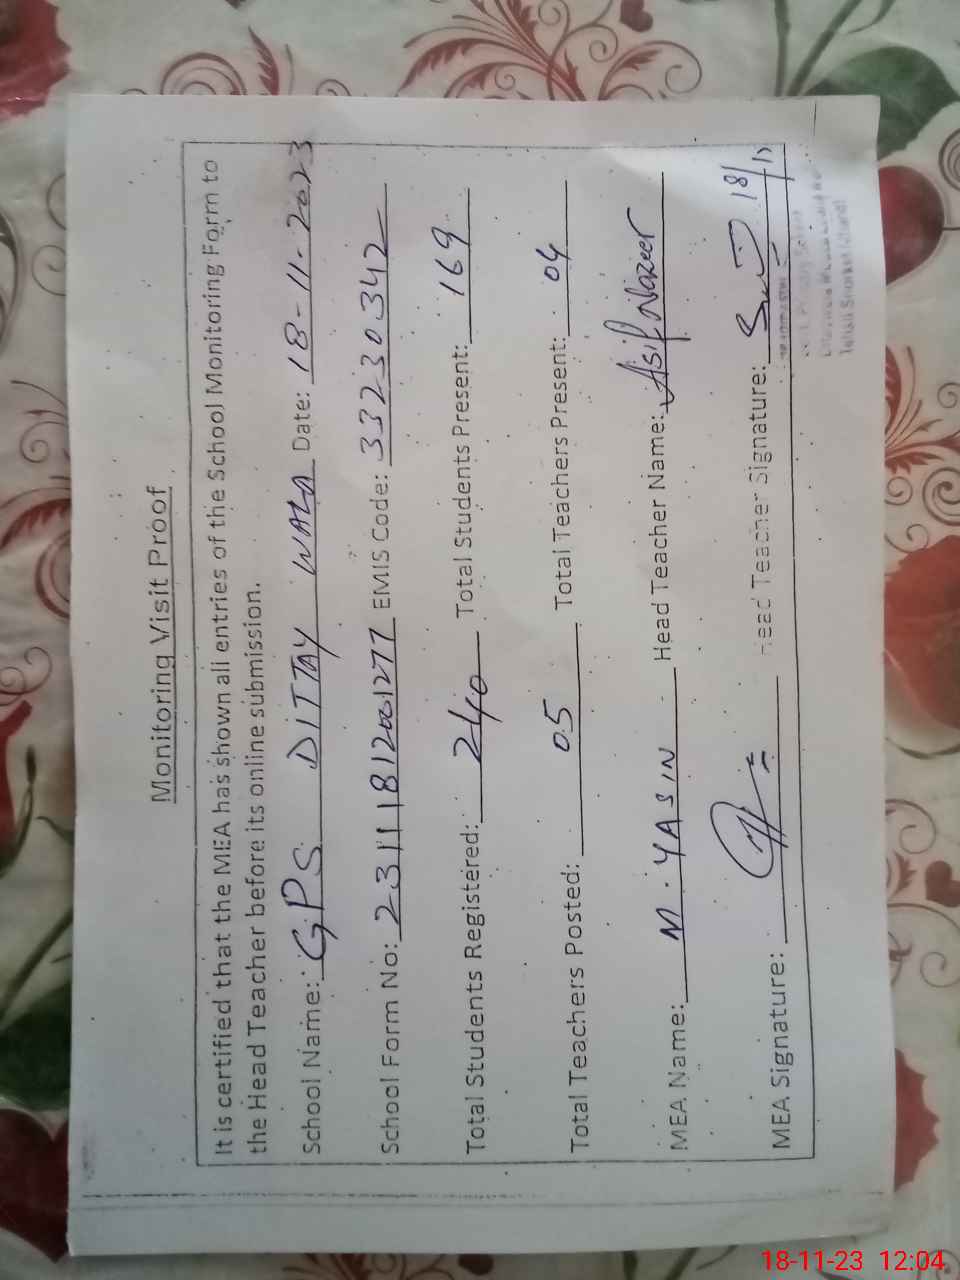 Monitoring Visit Proof
It is certified that the MEA has shown all entries of the School Monitoring Form to
the Head Teacher before its online submission.
School Name: GPS DITTAY WALA Date: 18-11-2023
School Form No: 23111812001277 EMIS Code: 33230342
Total Students Registered: 240 Total Students Present: 169
Total Teachers Posted: 05 Total Teachers Present: 04
MEA Name: M. YASIN Head Teacher Name: Asif Nazeer
MEA Signature: Head Teacher Signature: 18/11
18-11-23 12:04